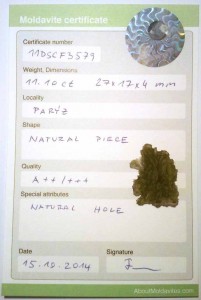 Moldavite certificate
Certificate number
11DSCF3579
Weight, Dimensions
11.10 ct 27x17x4 mm
Locality
PAŘÍZ
Shape
NATURAL PIECE
Quality
A++/+++
Special attributes
NATURAL HOLE
Date
Signature
15.10.2014
AboutMoldavites.com